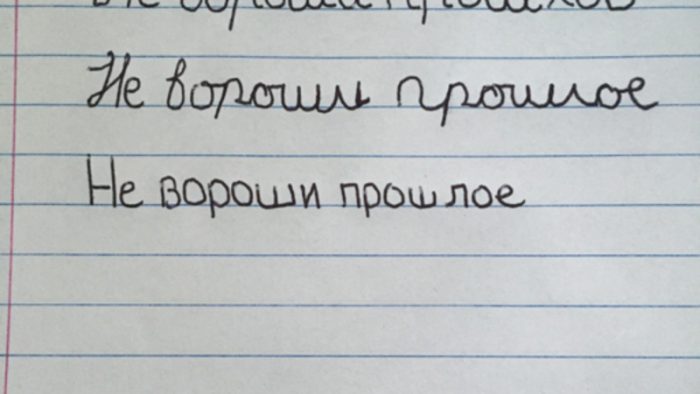 Не вороши прошлое
Не вороши прошлое